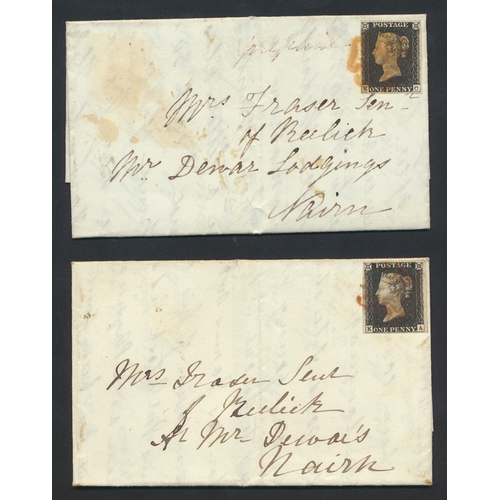 POSTAGE
ONE PENNY
Mrs Fraser Senr
of Reelick
Mr Dewar Lodgings
Nairn
POSTAGE
K ONE PENNY A
Mrs Fraser Senr
of Reelick
At Mr Dewar's
Nairn